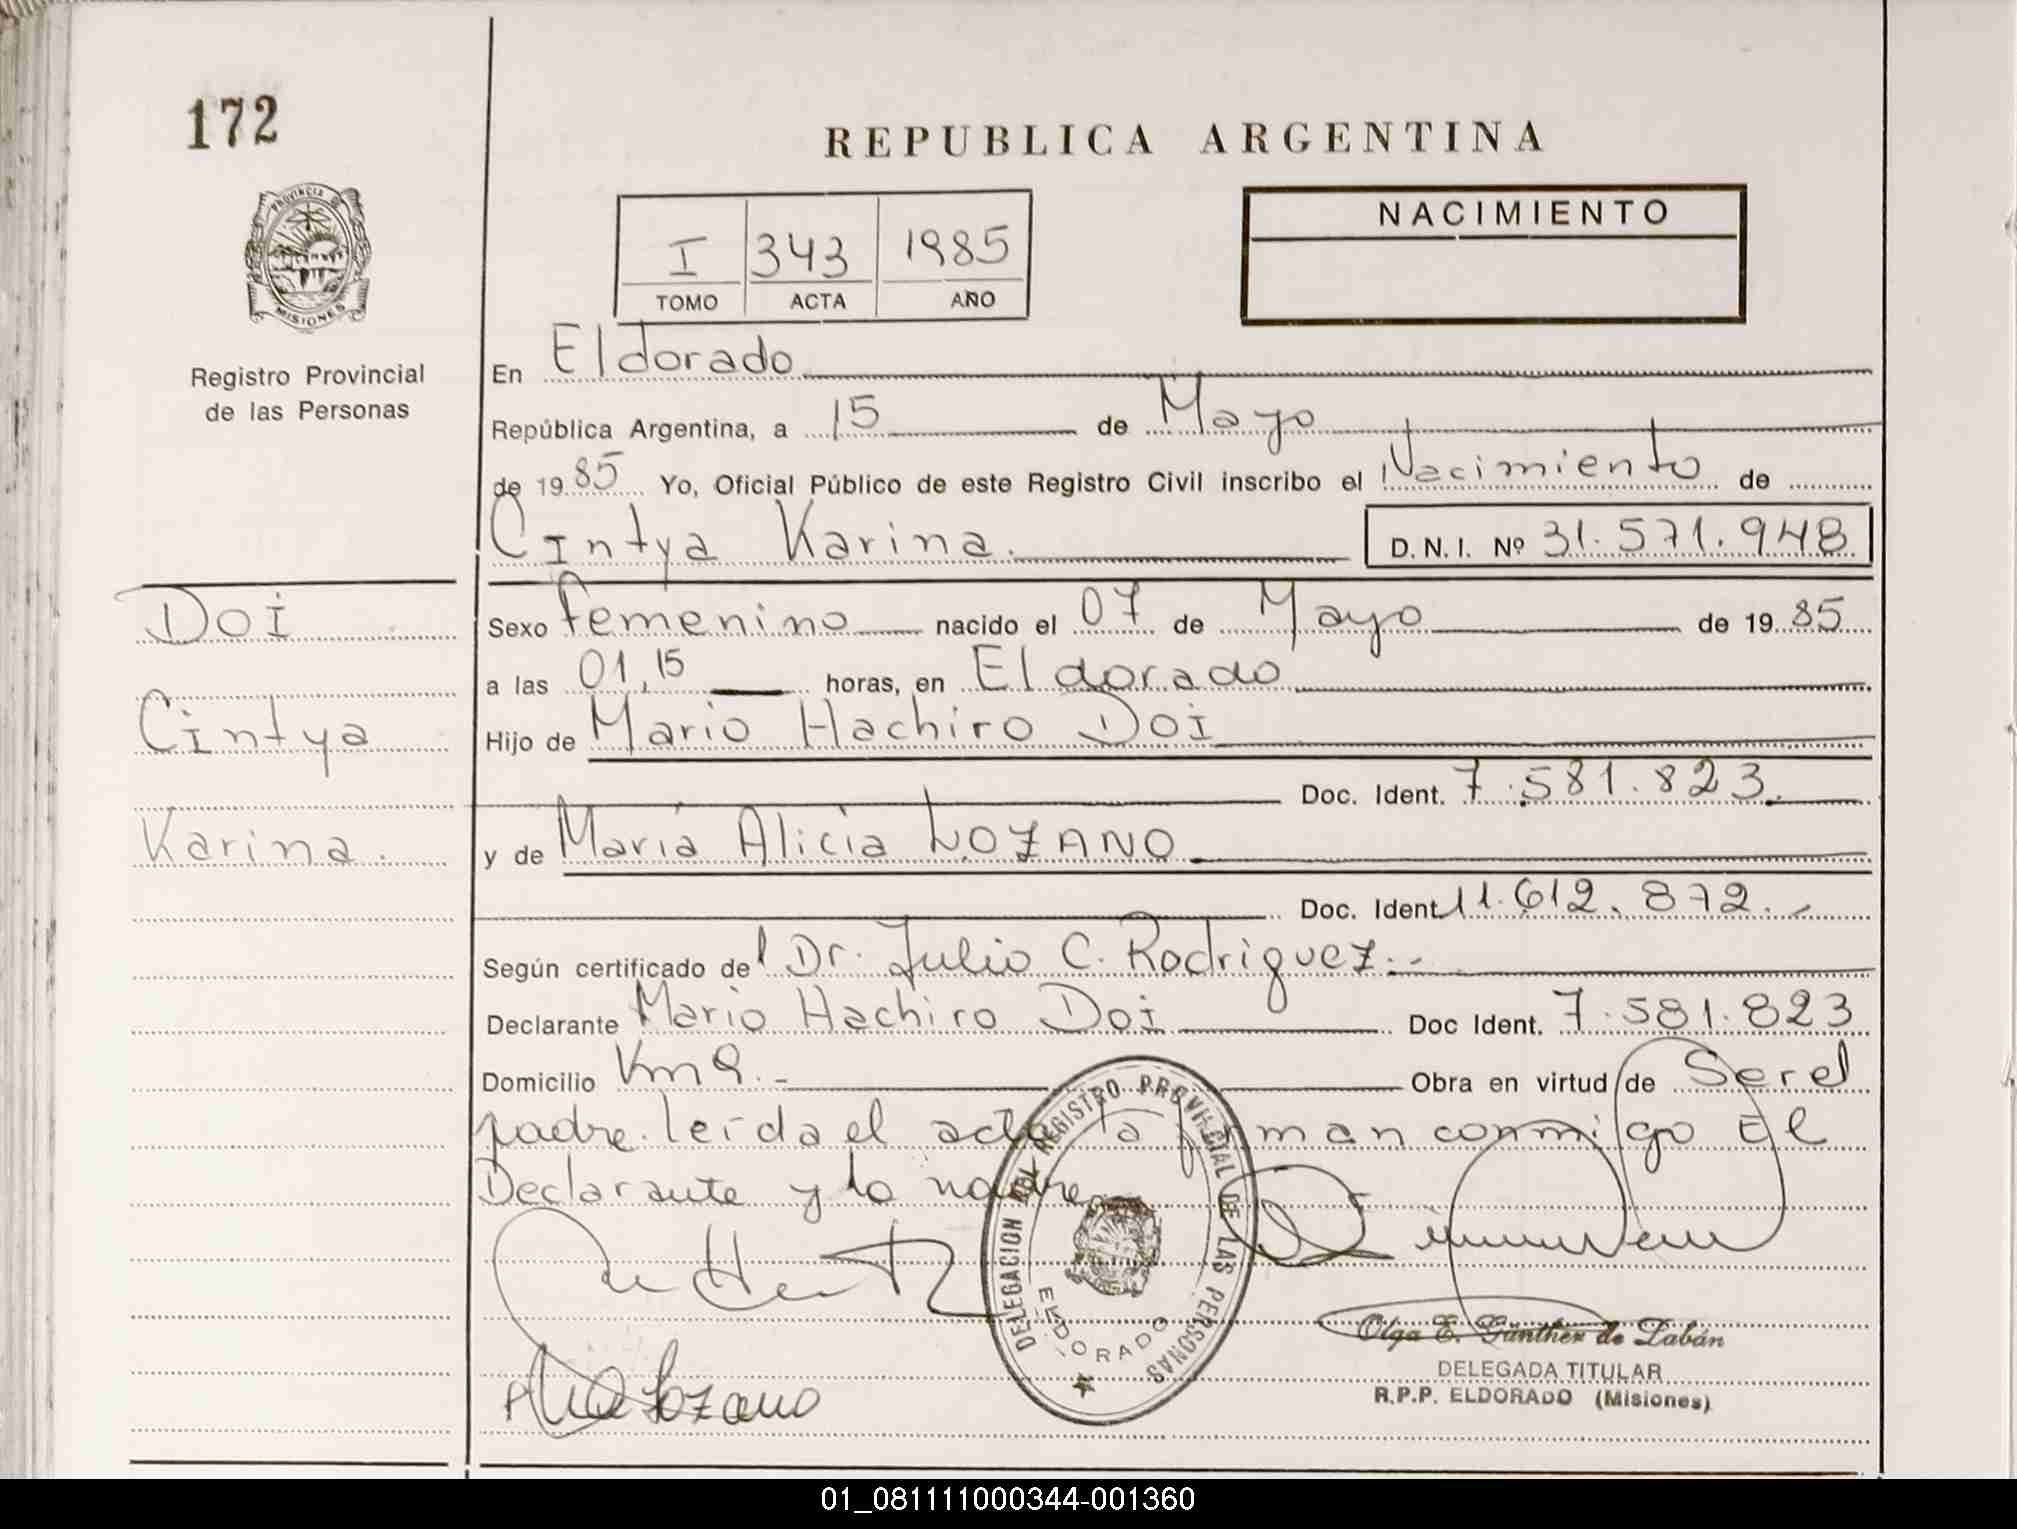 172
REPUBLICA ARGENTINA
PROVINCIA DE
MISIONES
NACIMIENTO
I 343 1985
TOMO ACTA AÑO
Registro Provincial
de las Personas
En Eldorado
República Argentina, a 15 de Mayo
de 1985 Yo, Oficial Público de este Registro Civil inscribo el Nacimiento de
Cintya Karina. D.N.I. Nº 31.571.948
Doi
Cintya
Karina.
Sexo femenino nacido el 07 de Mayo de 1985
a las 01,15 horas, en Eldorado
Hijo de Mario Hachiro Doi
Doc. Ident. 7.581.823.
y de María Alicia LOZANO
Doc. Ident 11.612.872.-
Según certificado del Dr. Julio C. Rodriguez.-
Declarante Mario Hachiro Doi Doc Ident. 7.581.823
Domicilio Km 9.- Obra en virtud de Ser el
padre. leída el acta la firman conmigo El
Declarante y la madre
DELEGACION DEL REGISTRO PROVINCIAL DE LAS PERSONAS
ELDORADO
Olga E. Günther de Zabán
DELEGADA TITULAR
R.P.P. ELDORADO (Misiones)
Alicia Lozano
01_081111000344-001360